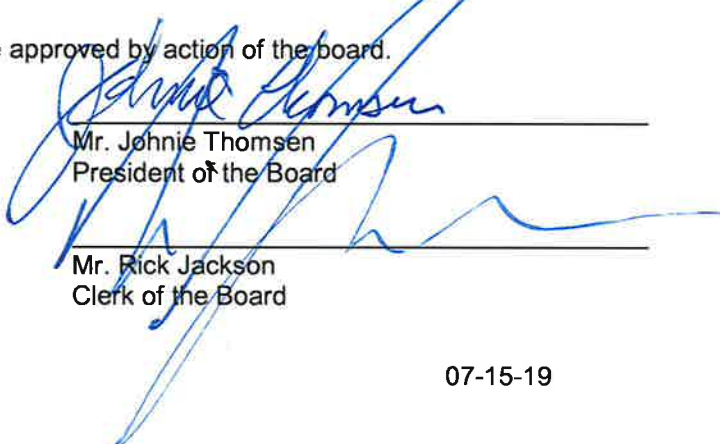 approved by action of the board.
Johnie Thomsen
Mr. Johnie Thomsen
President of the Board
Mr. Rick Jackson
Clerk of the Board
07-15-19